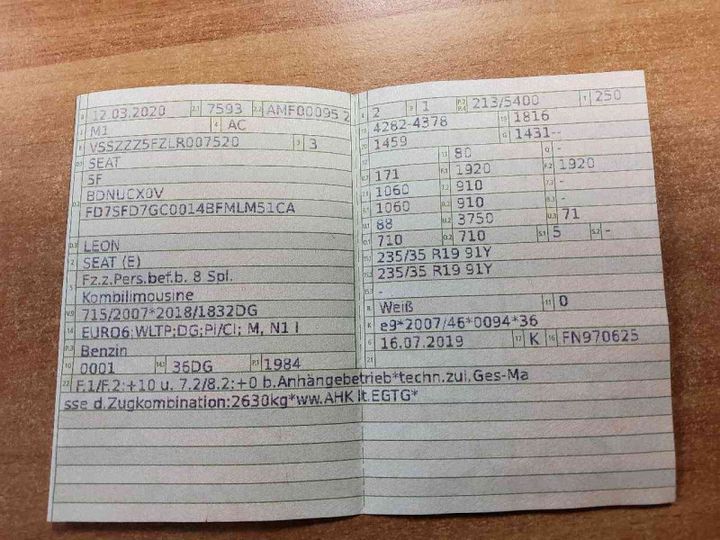 12.03.2020 7593 AMF00095 2
M1 AC
VSSZZZ5FZLR007520 3
SEAT
5F
BDNUCX0V
FD7SFD7GC0014BFMLM51CA
LEON
SEAT (E)
Fz.z.Pers.bef.b. 8 Spl.
Kombilimousine
715/2007*2018/1832DG
EURO6;WLTP;DG;PI/CI; M, N1 I
Benzin
0001 36DG 1984
2 1 213/5400 250
4282-4378 1816
1459 1431--
- 80 -
171 1920 1920
1060 910 -
1060 910 -
88 3750 71
710 710 5 -
235/35 R19 91Y
235/35 R19 91Y
-
Weiß 0
e9*2007/46*0094*36
16.07.2019 K FN970625
F.1/F.2:+10 u. 7.2/8.2:+0 b.Anhängebetrieb*techn.zul.Ges-Ma
sse d.Zugkombination:2630kg*ww.AHK lt.EGTG*